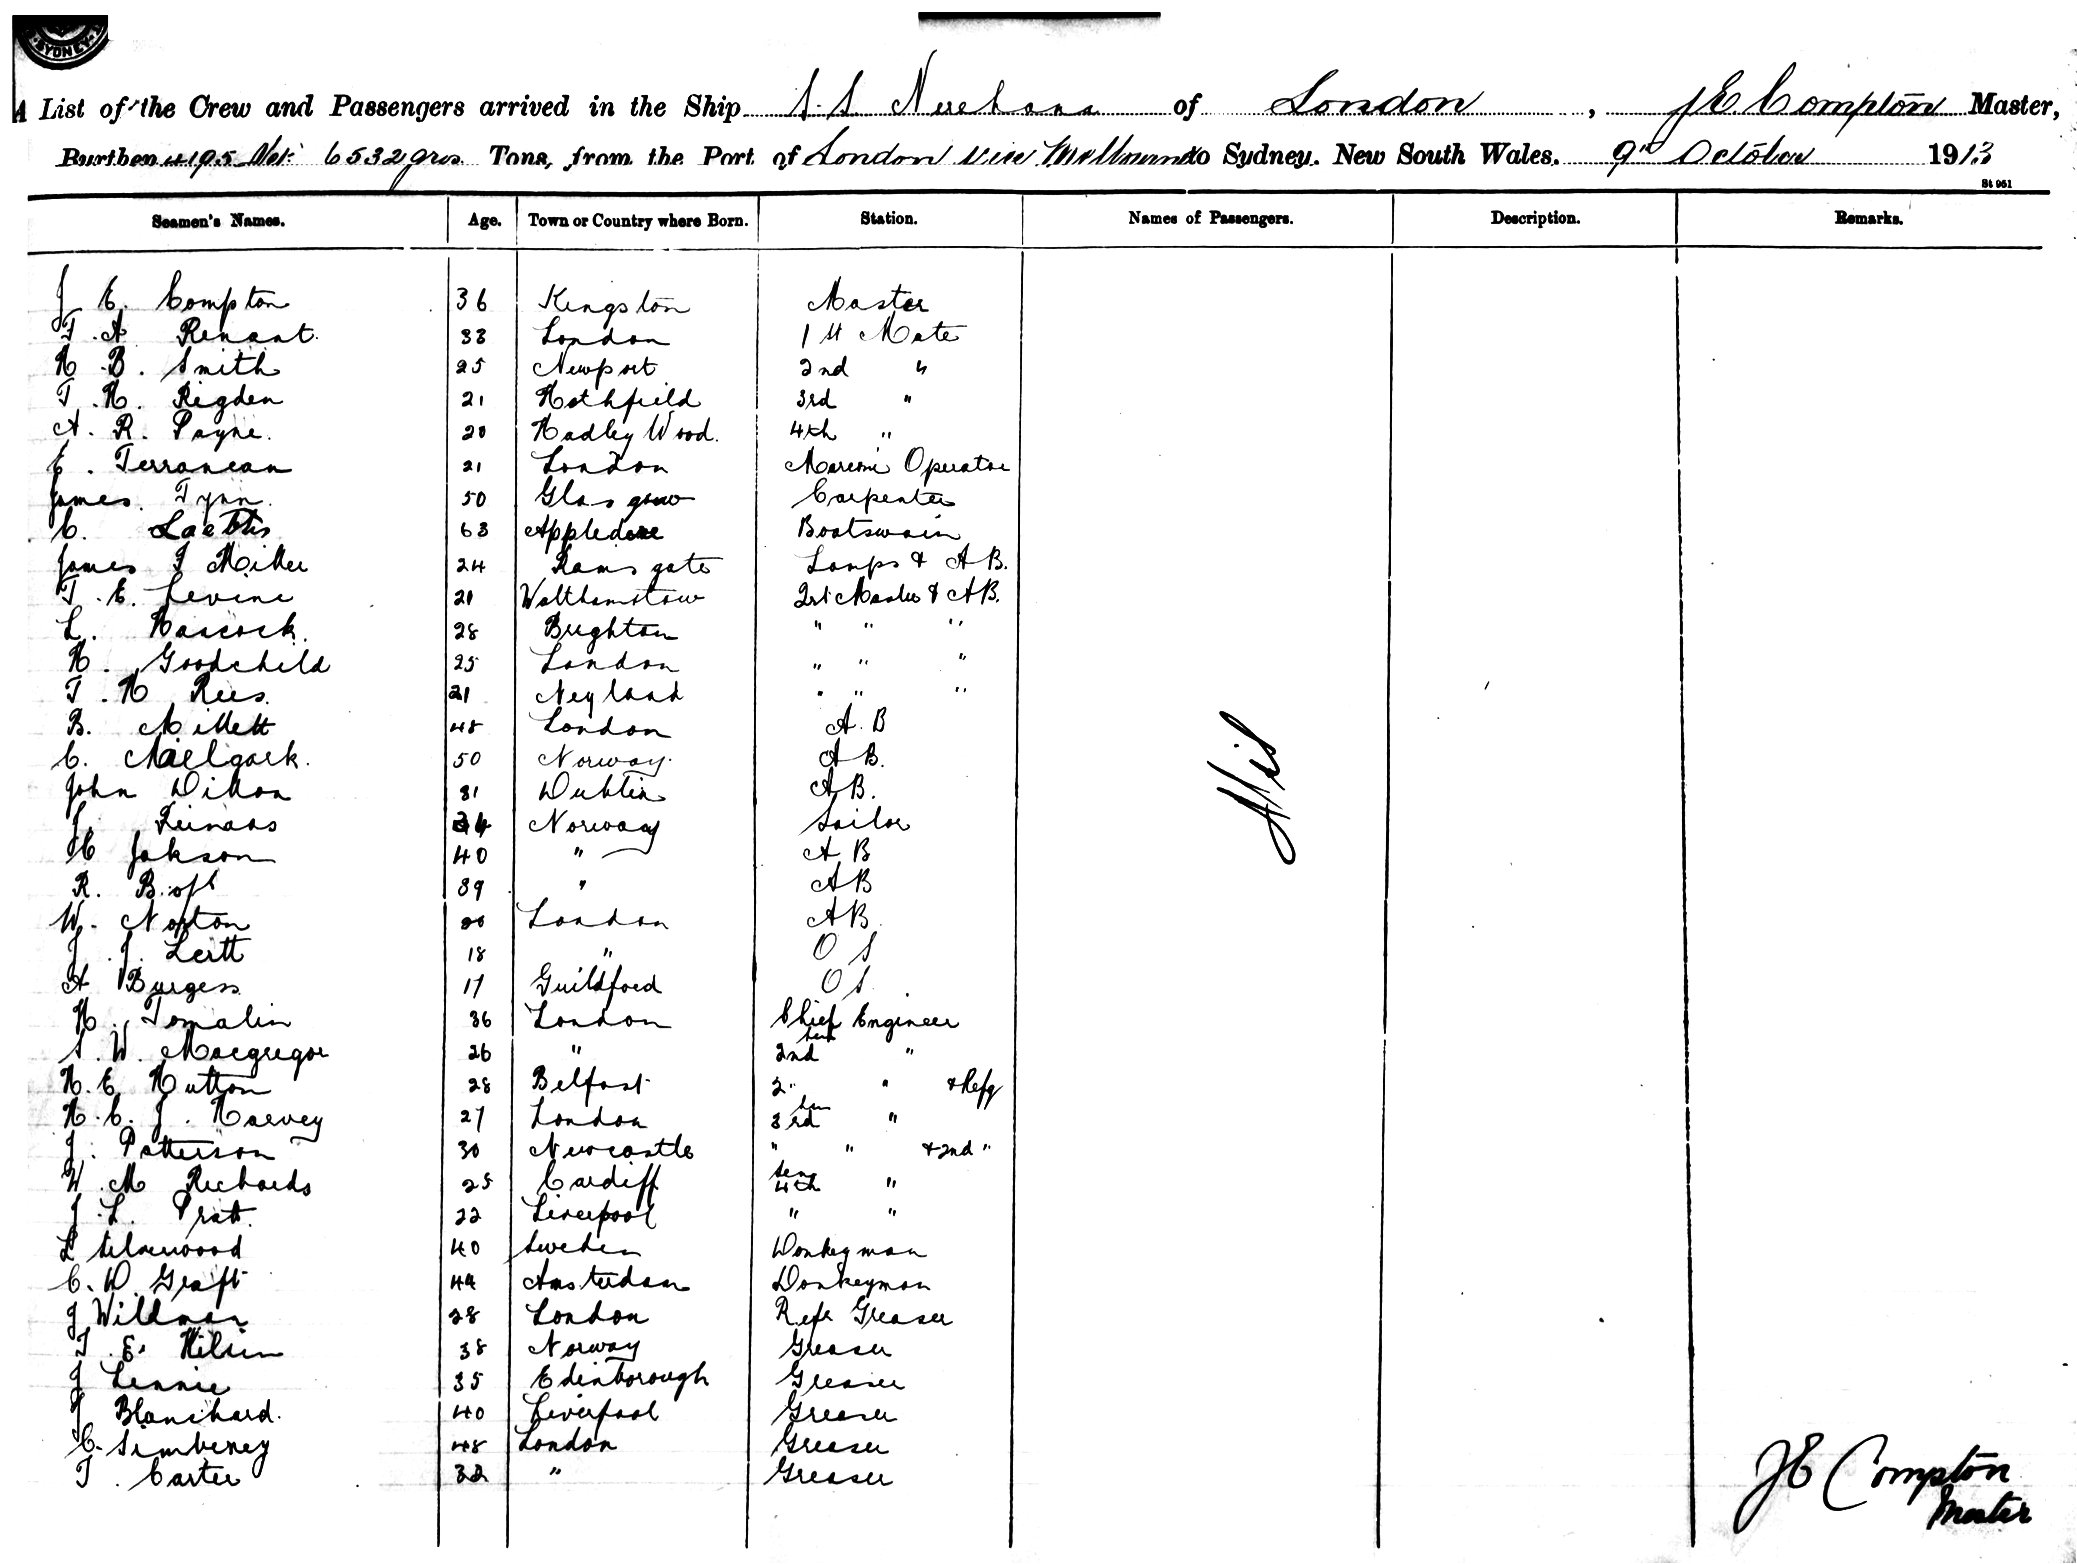 SYDNEY
A List of the Crew and Passengers arrived in the Ship S.S. Nerehana of London, J E Compton Master,
Burthen 4195 Net 6532 gros Tons, from the Port of London via Melbourne to Sydney, New South Wales, 9th October 1913
St 951
Seamen's Names. Age. Town or Country where Born. Station. Names of Passengers. Description. Remarks.
J E. Compton 36 Kingston Master
T. A. Renaut 33 London 1st Mate
H. B. Smith 25 Newport 2nd "
T. H. Rigden 21 Hothfield 3rd "
A. R. Payne. 20 Hadley Wood. 4th "
E. Terranean 21 London Marconi Operator
James Tynn 50 Glasgow Carpenter
C. 63 Appledore Boatswain
James F Miller 24 Ramsgate Lamps & A B.
T. E. Levine 21 Walthamstow Qrt Master & A B.
L. Hascock. 28 Brighton " " "
H. Goodchild 25 London " " "
T. H Rees. 21 Neyland " " "
B. Millett 48 London A. B
C. 50 Norway. A B.
John Dillon 31 Dublin A B.
J. Reinaas 34 Norway Sailor
C Jakson 40 " A B
R. 39 " A B
W. Norton London A B.
J. J. Leitt 18 " O S
A Burgess 17 Guildford O S.
H. Tomalin 36 London Chief Engineer
S. W. Macgregor 26 " 2nd "
H. E. Hutton 28 Belfast 2" " & Refg
H. C. J. Harvey 27 London 3rd "
J. Patterson 30 Newcastle " " & 2nd "
W. M Richards 25 Cardiff Sen 4th "
J. L. Pratt. 22 Liverpool " "
L Silverwood 40 Sweden Donkeyman
C. W. Graft 44 Amsterdam Donkeyman
J Willman 28 London Refr Greaser
T. E. Nilsen 38 Norway Greaser
J Lennie 35 Edinborough Greaser
J Blanchard. 40 Liverpool Greaser
C. Simbeney 48 London Greaser
T. Carter 32 " Greaser
Nil
J E Compton
Master